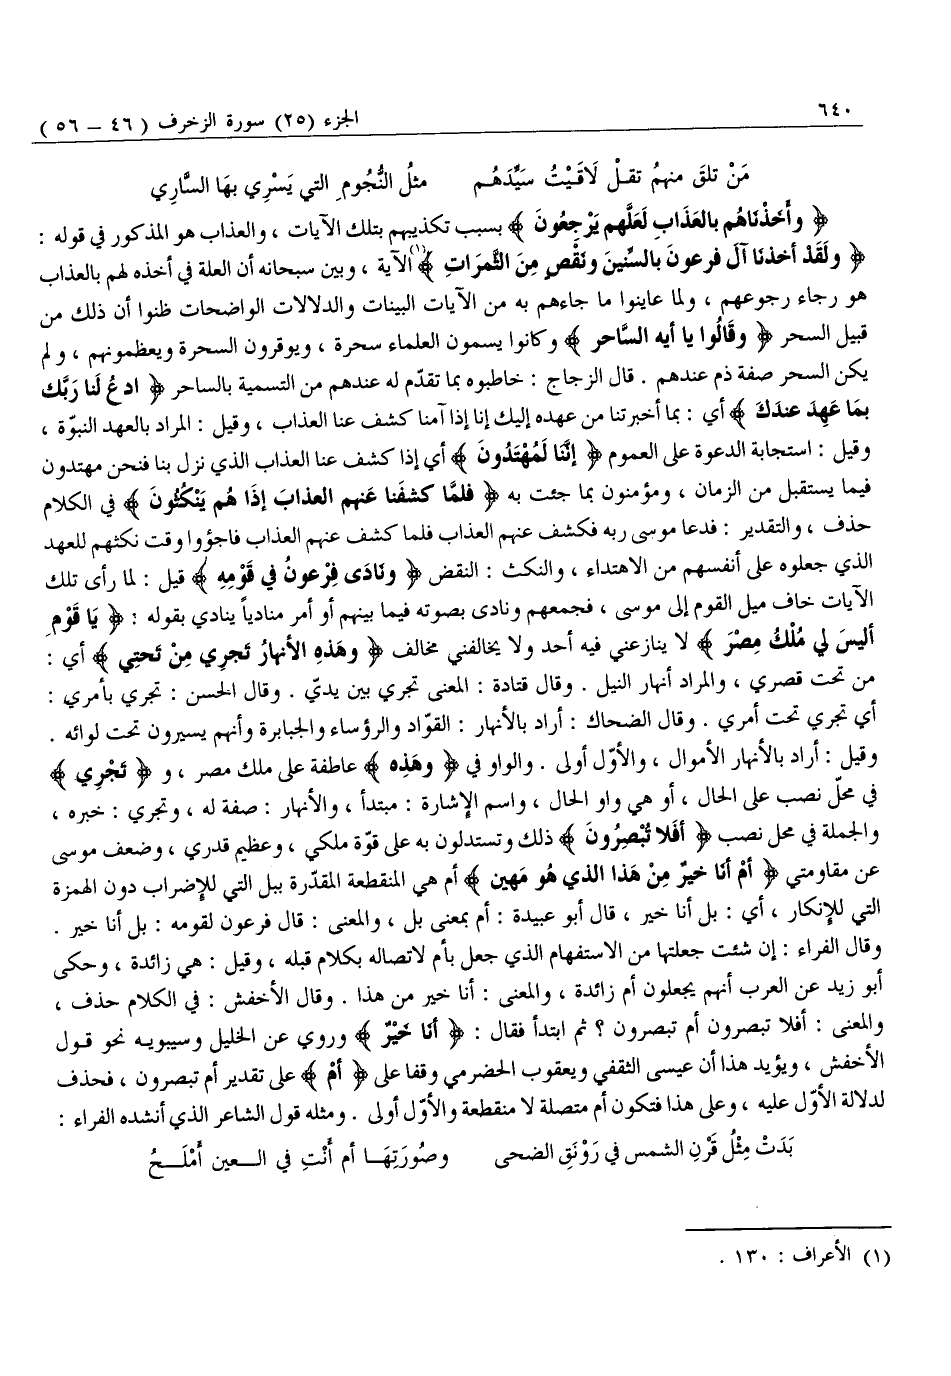 ٦٤٠
الجزء (٢٥) سورة الزخرف ( ٤٦ – ٥٦ )
مَنْ تلقَ منهمُ تقـلْ لَاقَيْتُ سَيِّدَهُـم مثلُ النُّجُومِ التي يَسْرِي بهَا السَّاري
﴿ وأَخذْنَاهُم بالعَذَابِ لَعَلَّهم يَرْجِعُونَ ﴾ بسبب تكذيبهم بتلك الآيات ، والعذاب هو المذكور في قوله :
﴿ ولَقَدْ أخذنَا آل فرعونَ بالسِّنينَ ونَقْصٍ مِنَ الثَّمرَاتِ ﴾(١) الآية ، وبين سبحانه أن العلة في أخذه لهم بالعذاب
هو رجاء رجوعهم ، ولما عاينوا ما جاءهم به من الآيات البينات والدلالات الواضحات ظنوا أن ذلك من
قبيل السحر ﴿ وقَالُوا يا أيه السَّاحر ﴾ وكانوا يسمون العلماء سحرة ، ويوقرون السحرة ويعظمونهم ، ولم
يكن السحر صفة ذم عندهم . قال الزجاج : خاطبوه بما تقدّم له عندهم من التسمية بالساحر ﴿ ادعُ لَنا رَبَّك
بمَا عَهِدَ عندَكَ ﴾ أي : بما أخبرتنا من عهده إليك إنا إذا آمنا كشف عنا العذاب ، وقيل : المراد بالعهد النبوّة ،
وقيل : استجابة الدعوة على العموم ﴿ إنَّنا لَمُهْتَدُونَ ﴾ أي إذا كشف عنا العذاب الذي نزل بنا فنحن مهتدون
فيما يستقبل من الزمان ، ومؤمنون بما جئت به ﴿ فلمَّا كشفْنا عَنهم العذابَ إذَا هُم يَنْكُثُونَ ﴾ في الكلام
حذف ، والتقدير : فدعا موسى ربه فكشف عنهم العذاب فلما كشف عنهم العذاب فاجؤوا وقت نكثهم للعهد
الذي جعلوه على أنفسهم من الاهتداء ، والنكث : النقض ﴿ ونَادَى فِرْعونُ في قَوْمِهِ ﴾ قيل : لما رأى تلك
الآيات خاف ميل القوم إلى موسى ، فجمعهم ونادى بصوته فيما بينهم أو أمر منادياً ينادي بقوله : ﴿ يَا قَوْمِ
أليسَ لي مُلْكُ مِصْرَ ﴾ لا ينازعني فيه أحد ولا يخالفني مخالف ﴿ وهَذهِ الأنهارُ تَجرِي مِنْ تَحتِي ﴾ أي :
من تحت قصري ، والمراد أنهار النيل . وقال قتادة : المعنى تجري بين يديّ . وقال الحسن : تجري بأمري :
أي تجري تحت أمري . وقال الضحاك : أراد بالأنهار : القوّاد والرؤساء والجبابرة وأنهم يسيرون تحت لوائه .
وقيل : أراد بالأنهار الأموال ، والأوّل أولى . والواو في ﴿ وهَذه ﴾ عاطفة على ملك مصر ، و ﴿ تَجْرِي ﴾
في محلّ نصب على الحال ، أو هي واو الحال ، واسم الإشارة : مبتدأ ، والأنهار : صفة له ، وتجري : خبره ،
والجملة في محل نصب ﴿ أفَلا تُبْصِرُونَ ﴾ ذلك وتستدلون به على قوّة ملكي ، وعظيم قدري ، وضعف موسى
عن مقاومتي ﴿ أمْ أنَا خيرٌ مِنْ هَذا الذي هُو مَهين ﴾ أم هي المنقطعة المقدّرة ببل التي للإضراب دون الهمزة
التي للإنكار ، أي : بل أنا خير ، قال أبو عبيدة : أم بمعنى بل ، والمعنى : قال فرعون لقومه : بل أنا خير .
وقال الفراء : إن شئت جعلتها من الاستفهام الذي جعل بأم لاتصاله بكلام قبله ، وقيل : هي زائدة ، وحكى
أبو زيد عن العرب أنهم يجعلون أم زائدة ، والمعنى : أنا خير من هذا . وقال الأخفش : في الكلام حذف ،
والمعنى : أفلا تبصرون أم تبصرون ؟ ثم ابتدأ فقال : ﴿ أنَا خَيْرٌ ﴾ وروي عن الخليل وسيبويه نحو قول
الأخفش ، ويؤيد هذا أن عيسى الثقفي ويعقوب الحضرمي وقفا على ﴿ أمْ ﴾ على تقدير أم تبصرون ، فحذف
لدلالة الأوّل عليه ، وعلى هذا فتكون أم متصلة لا منقطعة والأوّل أولى . ومثله قول الشاعر الذي أنشده الفراء :
بَدَتْ مِثْلُ قَرْنِ الشمس في رَوْنَقِ الضحى وصُورَتِهَـا أم أنْتِ في العـين أَمْلَـحُ
(١) الأعراف : ١٣٠ .